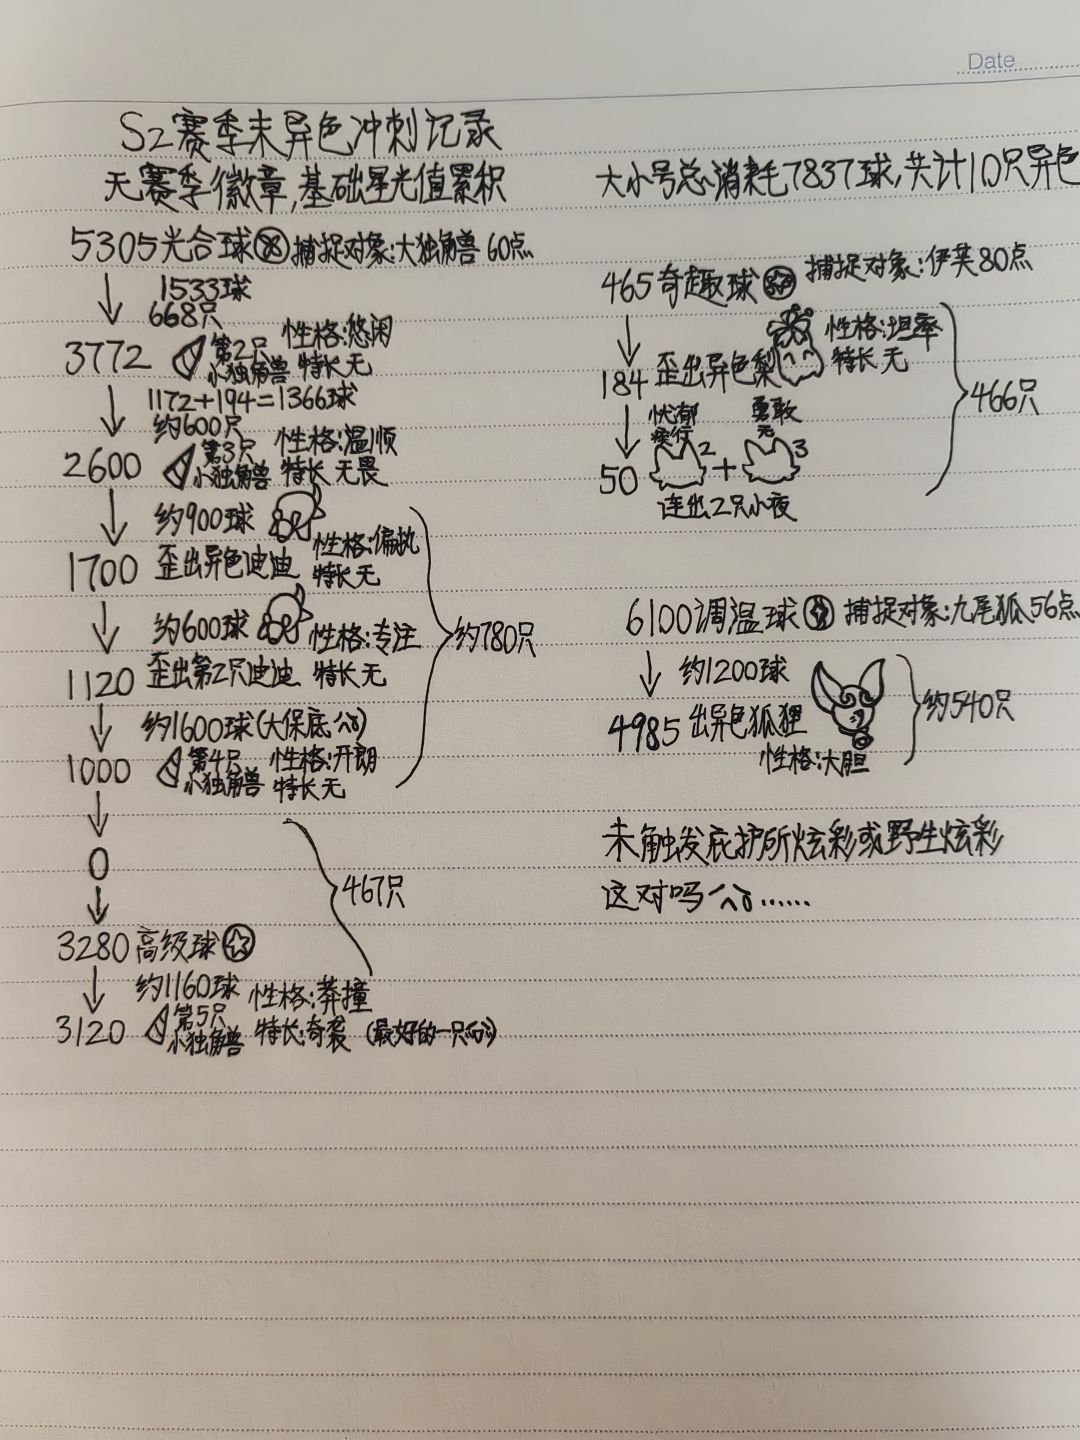 Date
S2赛季末异色冲刺记录
无赛季徽章,基础星光值累积
5305光合球 捕捉对象:大独角兽 60点
1533球
668只
3772 第2只 小独角兽 性格:悠闲 特长 无
1172+194=1366球
约600只
2600 第3只 小独角兽 性格:温顺 特长 无畏
约900球
1700 歪出异色迪迪 性格:偏执 特长 无
约600球
1120 歪出第2只迪迪 性格:专注 特长 无
约780只
约1600球(大保底)
1000 第4只 小独角兽 性格:开朗 特长 无
0
467只
3280高级球
约1160球
3120 第5只 小独角兽 性格:莽撞 特长:奇袭 (最好的一只)
大小号总消耗7837球,共计10只异色
465奇趣球 捕捉对象:伊芙80点
184 歪出异色梨 性格:坦率 特长 无
466只
忧郁 勇敢
无
50 2+3
连出2只小夜
6100调温球 捕捉对象:九尾狐56点
约1200球
4985 出异色狐狸
性格:大胆
约540只
未触发庇护所炫彩或野生炫彩
这对吗……